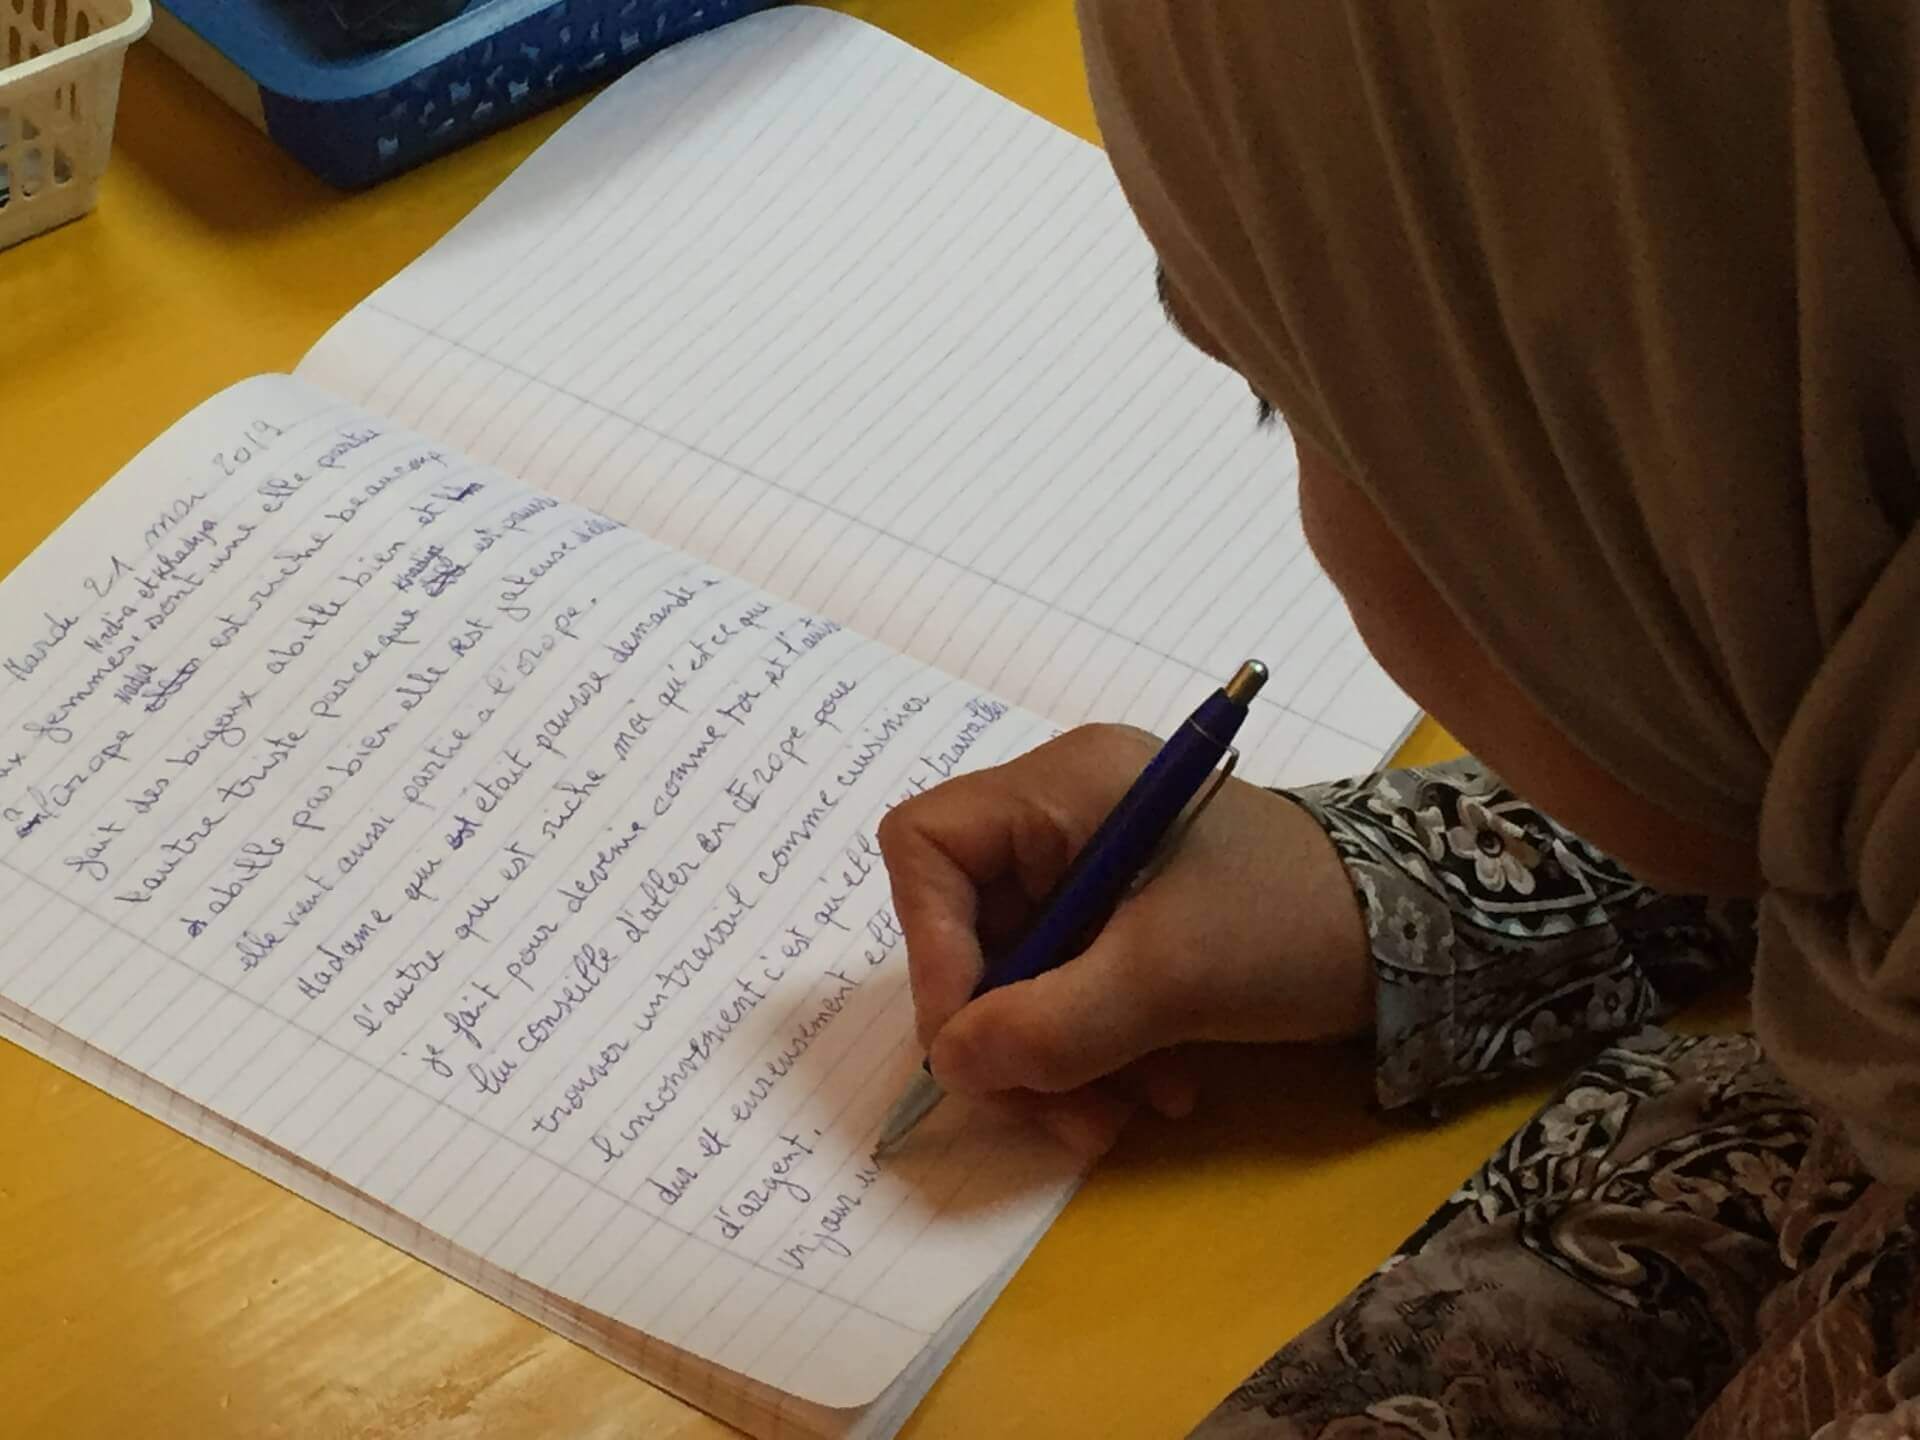 Mardi 21 mai 2019
Nadia et Khadija
femmes, sont une elle partie
Nadia
à l'orope est riche beaucoup
fait des bigoux abille bien et
Khadija
l'autre triste parceque est pauvr
et abille pas bien elle est jaleuse
elle vient aussi partie a l'orope.
Madame qui était pauvre demande a
l'autre qui est riche moi qu'est ce qu
je fait pour devenir comme toi et l'autr
lui conseille d'aller en Erope pour
trouver un travail comme cuisinier
l'inconvenient c'est qu'ell travaille
dur et eureusement ell
d'argent.
un jour un